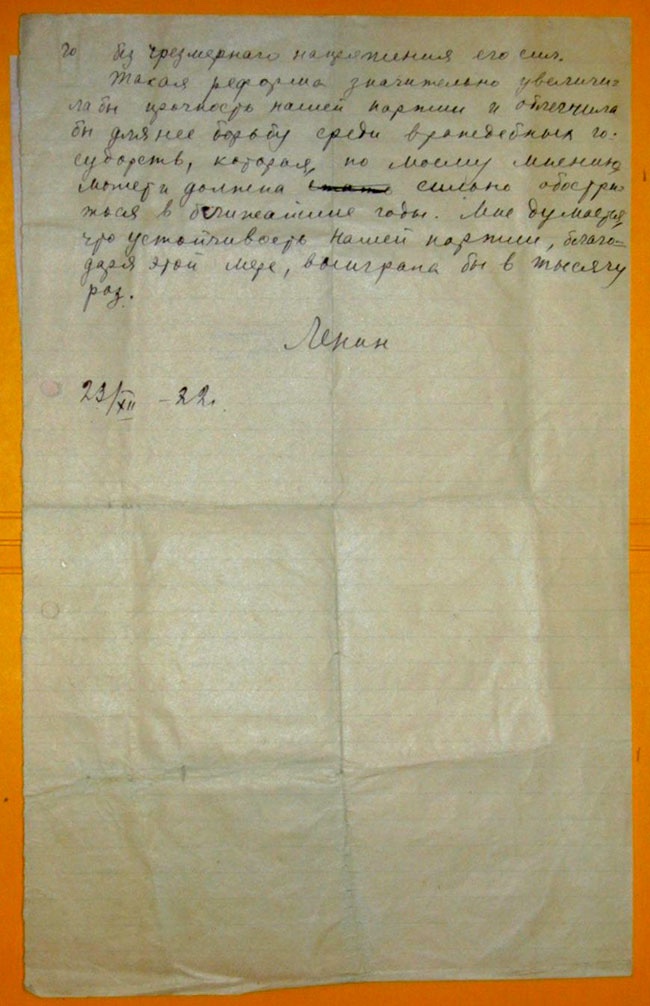 го без чрезмернаго напряжения его сил.
Такая реформа значительно увеличи-
ла бы прочность нашей партии и облегчила
бы для нее борьбу среди враждебных го-
сударств, которая, по моему мнению,
может и должна сильно обостри-
ться в ближайшие годы. Мне думается,
что устойчивость нашей партии, благо-
даря этой мере, выиграла бы в тысячу
раз.
Ленин
23/XII – 22 г.